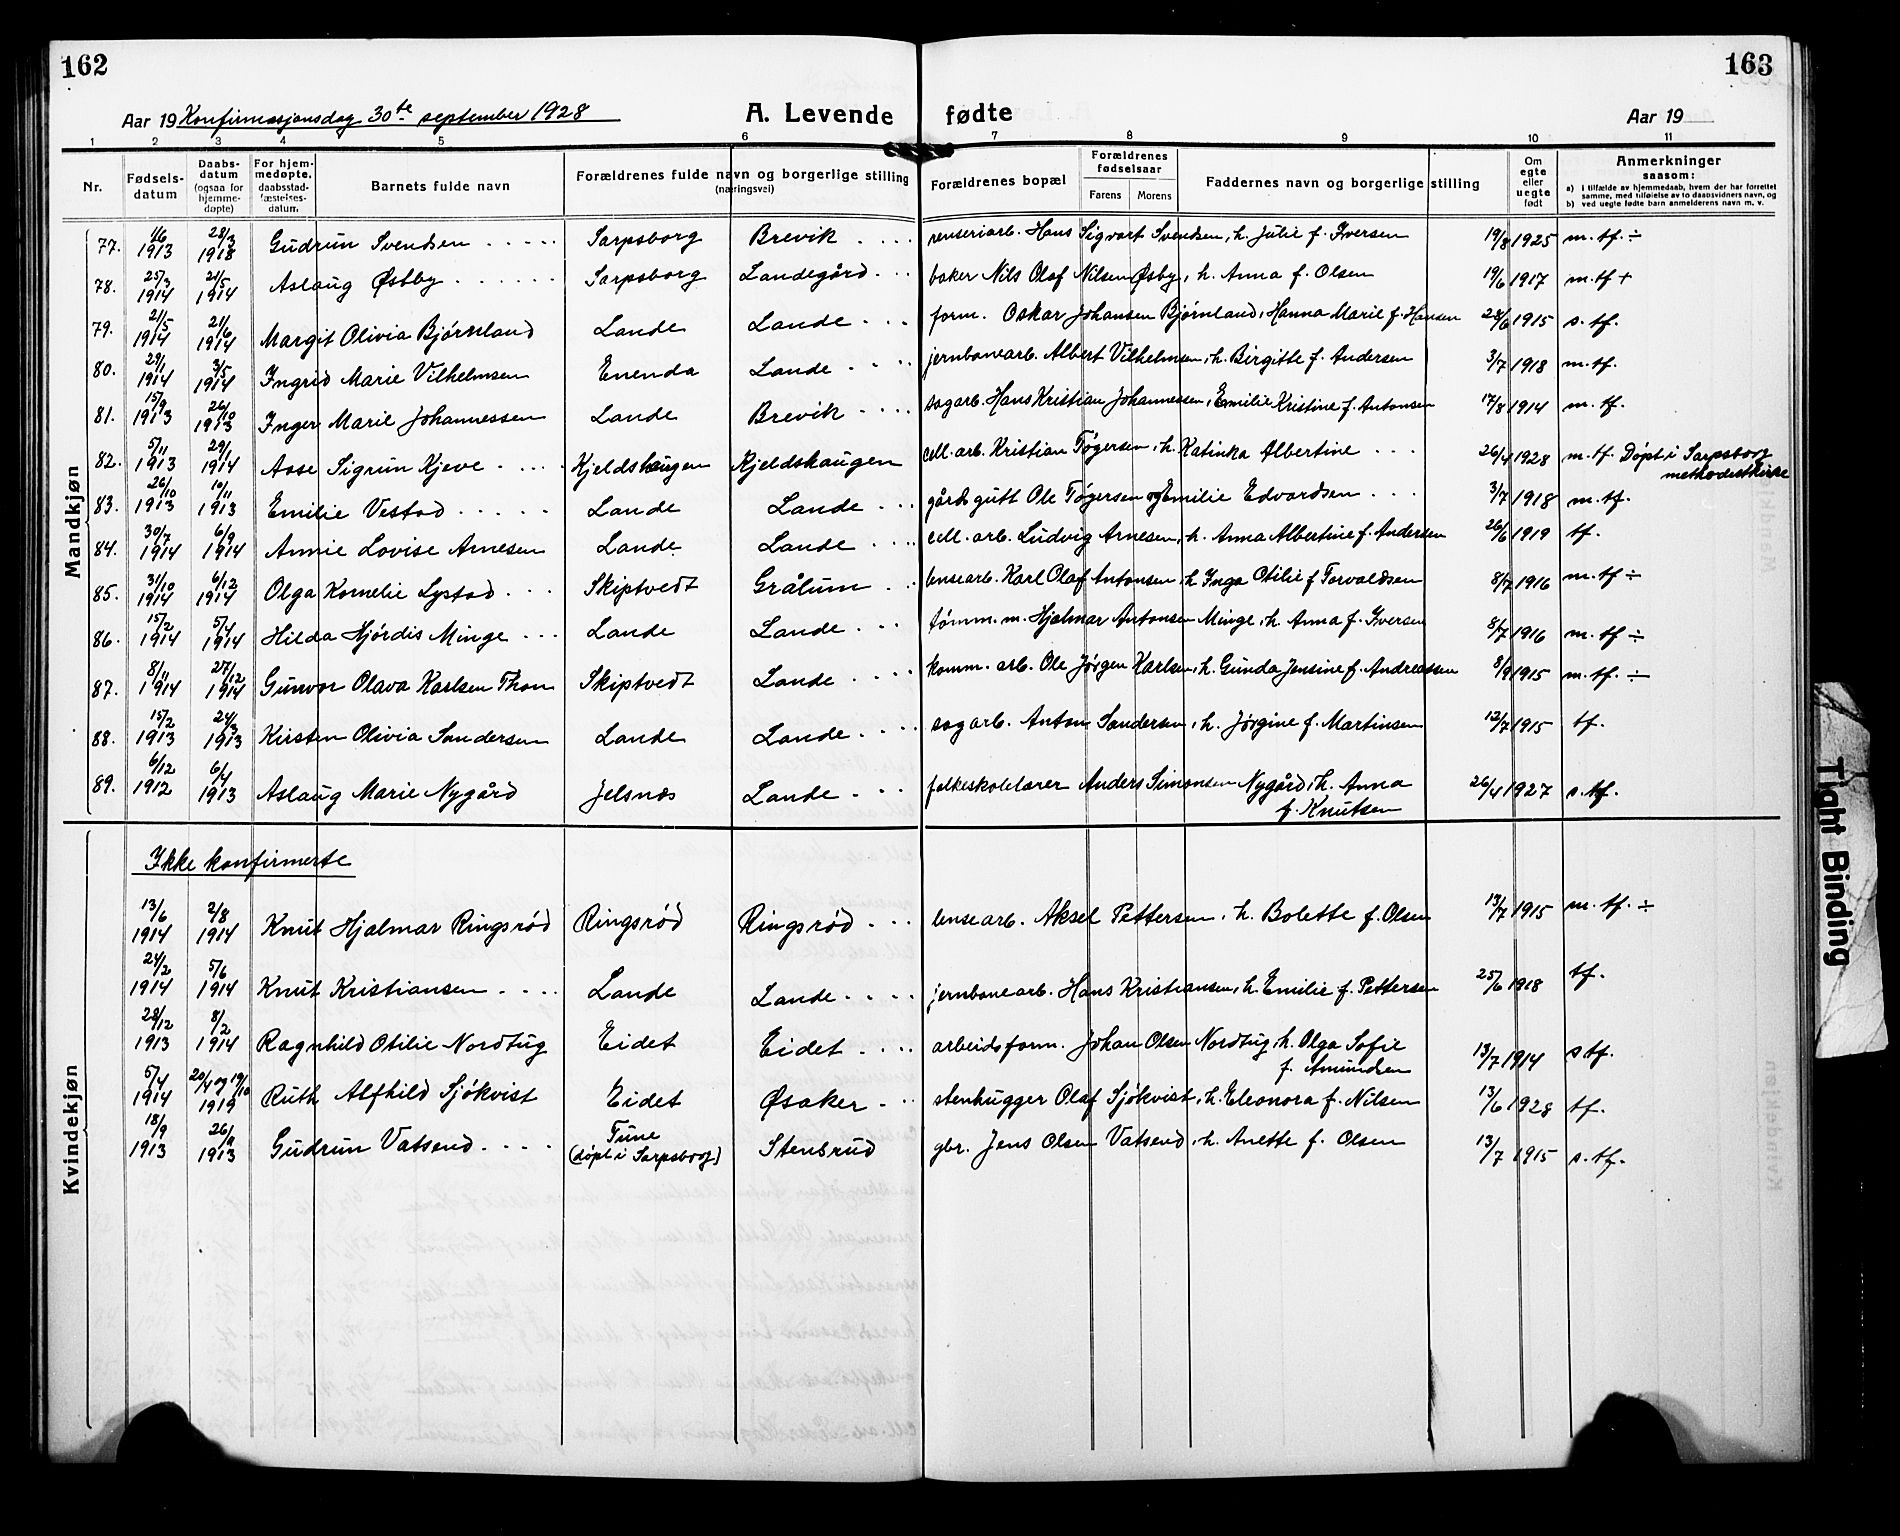 162
163
Aar 19 Konfirmasjonsdag 30te september 1928
A. Levende fødte
Aar 19
1 2 3 4 5 6 7 8 9 10 11
Nr.
Fødsels-datum
Daabs-datum (ogsaa for hjemme-døpte)
For hjem-medøpte, daabsstad-fæstelses-datum.
Barnets fulde navn
Forældrenes fulde navn og borgerlige stilling (næringsvei)
Forældrenes bopæl
Forældrenes fødselsaar
Farens Morens
Faddernes navn og borgerlige stilling
Om egte eller uegte født
Anmerkninger saasom:
a) I tilfælde av hjemmedaab, hvem der har forrettet samme, med tilføielse av to daabsvidners navn, og
b) ved uegte fødte barn anmelderens navn m. v.
Mandkjøn
77. 1/6 1913 28/3 1918 Gudrun Svendsen ..... Sarpsborg Brevik .... renseriarb. Hans Sigvart Svendsen, h. Julie f. Iversen 19/8 1925 m. tf. ÷
78. 25/3 1914 21/5 1914 Aslaug Østby ...... Sarpsborg Landegård ... baker Nils Olaf Nilsen Øsby, h. Anna f. Olsen 19/6 1917 m. tf +
79. 21/5 1914 21/6 1914 Margit Olivia Bjørnland Lande Lande ... form. Oskar Johansen Bjørnland, Hanna Marie f. Hansen 28/6 1915 s. tf.
80. 29/1 1914 3/5 1914 Ingrid Marie Vilhelmsen Enenda Lande .... jernbanearb. Albert Vilhelmsen, h. Birgitte f. Andersen 3/7 1918 m. tf.
81. 15/9 1913 26/10 1913 Inger Marie Johannessen Lande Brevik .... sagarb. Hans Kristian Johannessen, Emilie Kristine f. Antonsen 17/8 1914 m. tf.
82. 5/11 1913 29/1 1914 Aase Sigrun Kjeve .... Kjeldshaugen Kjeldshaugen cell. arb. Kristian Tøgersen, h. Katinka Albertine ... 26/4 1928 m. tf. Døpt i Sarpsborg
methodistkirke
83. 26/10 1913 10/11 1913 Emilie Vestad ..... Lande Lande ... gårdsgutt Ole Tøgersen og Emilie Edvardsen ... 3/7 1918 m. tf.
84. 30/7 1914 6/9 1914 Annie Lovise Arnesen Lande Lande .... cell. arb. Ludvig Arnesen, h. Anna Albertine f. Andersen 26/6 1919 tf.
85. 31/10 1914 6/12 1914 Olga Kornelie Lystad ... Skiptvedt Grålum .. lensearb. Karl Olaf Antonsen, h Inga Otilie f Torvaldsen 8/7 1916 m. tf ÷
86. 15/2 1914 5/4 1914 Hilda Hjørdis Minge ... Lande Lande ... tømm. m. Hjalmar Antonsen Minge, h. Anna f. Iversen 8/7 1916 m. tf ÷
87. 8/11 1914 27/12 1914 Gunvor Olava Karlsen Thon Skiptvedt Lande .... komm. arb. Ole Jørgen Karlsen, h. Gunda Jensine f. Andreassen 8/9 1915 m. tf. ÷
88. 15/2 1913 24/3 1913 Kirsten Olivia Sandersen Lande Lande .... sagarb. Anton Sandersen, h. Jørgine f. Martinsen 12/7 1915 tf.
89. 6/12 1912 6/4 1913 Aslaug Marie Nygård Jelsnæs Lande ... folkeskolelærer Anders Simonsen Nygård, h. Anna 26/4 1927 s. tf.
f. Knutsen
Kvindekjøn
Ikke konfirmerte
13/6 1914 2/8 1914 Knut Hjalmar Ringsrød Ringsrød Ringsrød ... lensearb. Aksel Pettersen, h. Bolette f. Olsen 13/7 1915 m. tf. ÷
24/2 1914 5/6 1914 Knut Kristiansen .... Lande Lande .... jernbanearb. Hans Kristiansen, h. Emilie f. Pettersen 25/6 1918 tf.
28/12 1913 8/2 1914 Ragnhild Otilie Nordtug Eidet Eidet .... arbeidsform. Johan Olsen Nordtug, h. Olga Sofie 13/7 1914 s tf.
f. Amundsen
5/4 1914 20/4 og 19/10 1919 Ruth Alfhild Sjökvist Eidet Øsaker ... stenhugger Olaf Sjökvist, h. Eleonora f. Nilsen 13/6 1928 tf.
18/9 1913 26/9 1913 Gudrun Vatsend .... Tune Stensrud gbr. Jens Olsen Vatsend, h. Anette f. Olsen 13/7 1915 s. tf.
(døpt i Sarpsborg)
Tight Binding